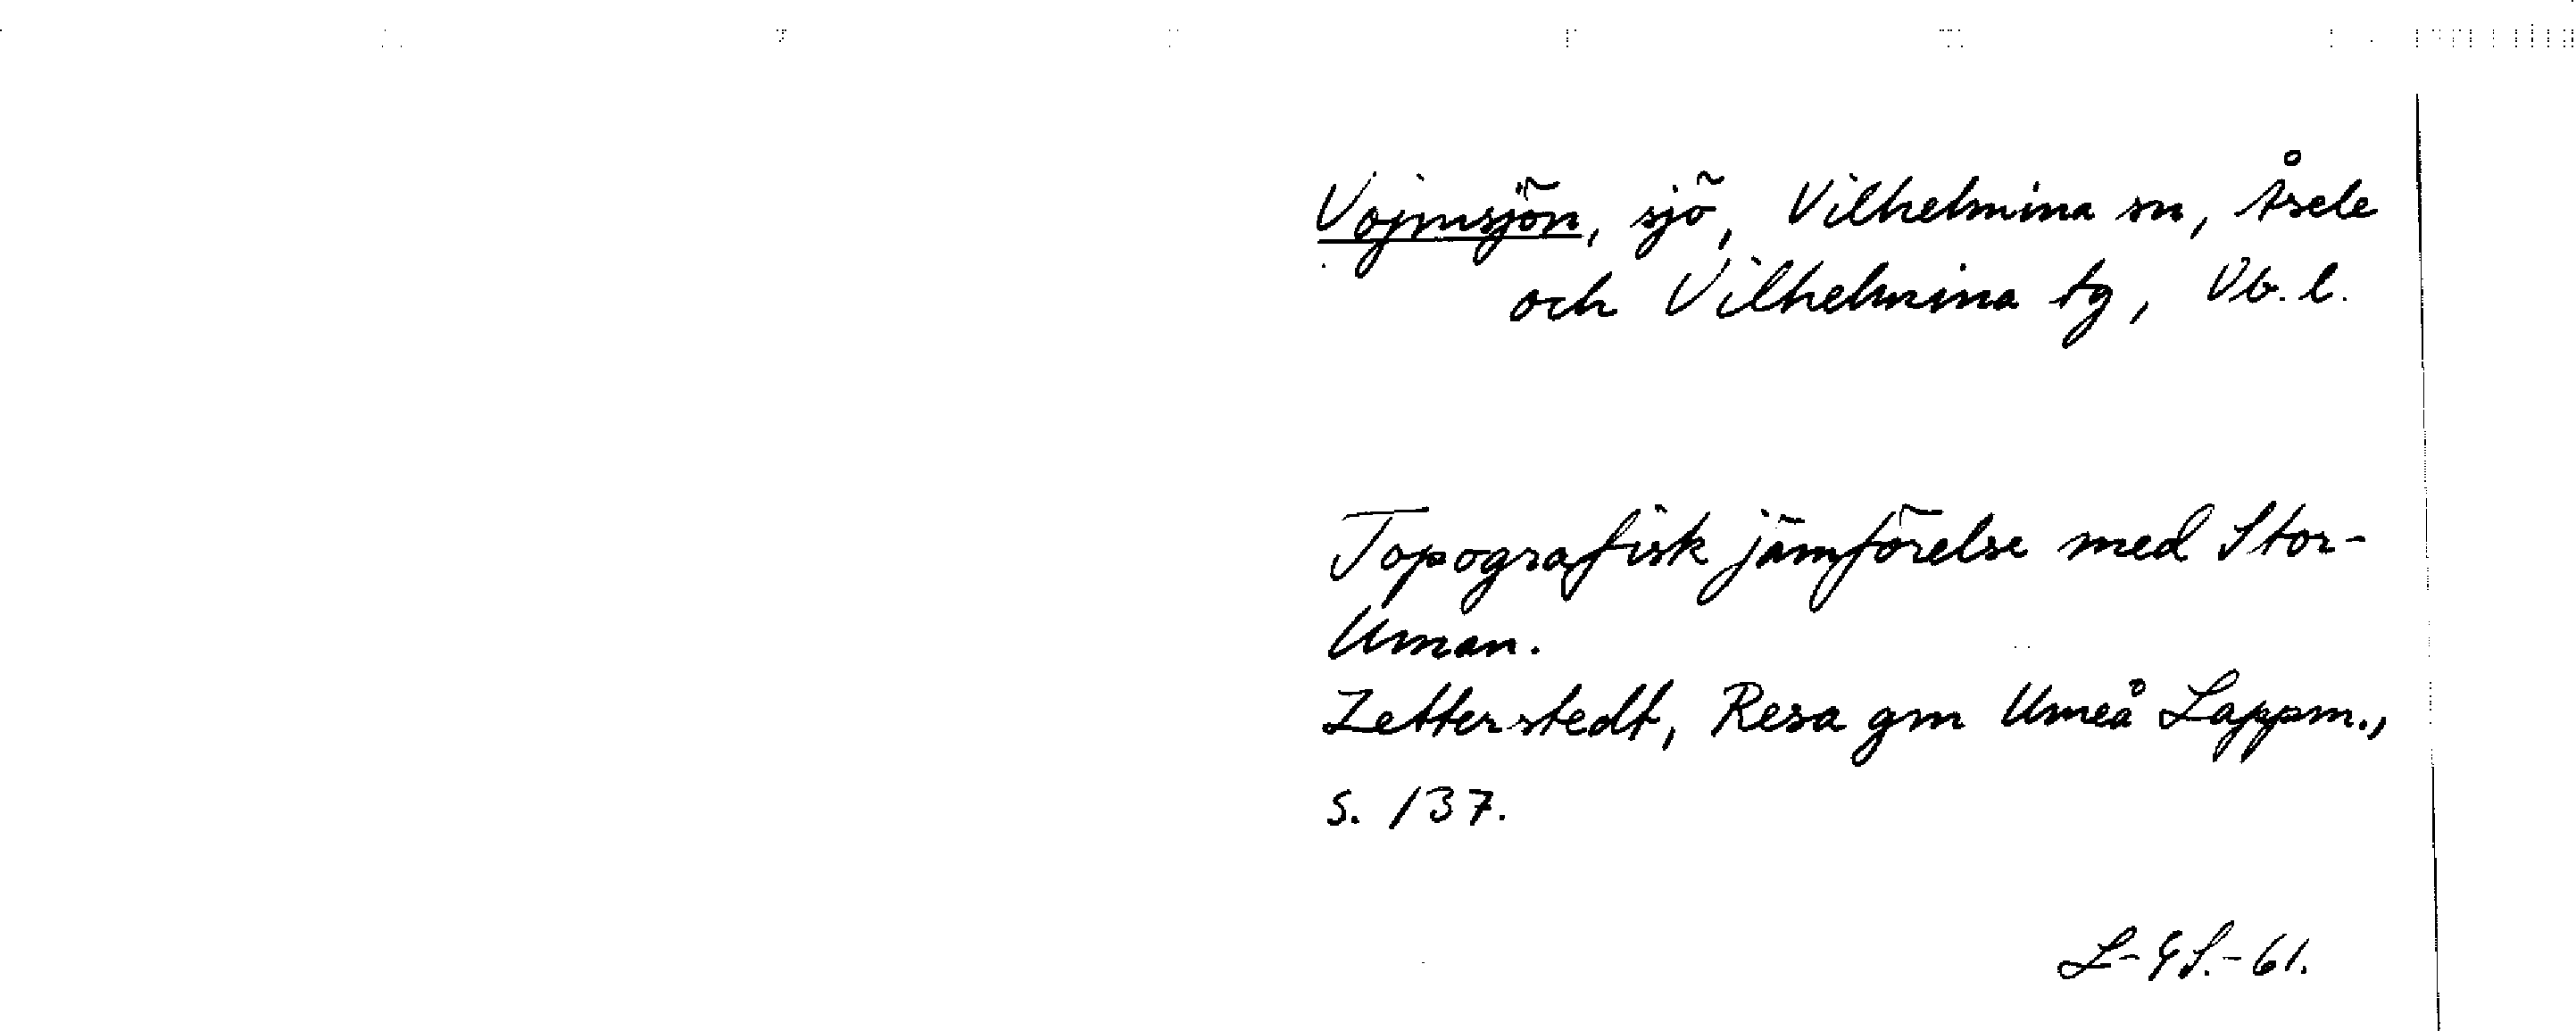 Vojmsjön, sjö, Vilhelmina sn, Åsele
och Vilhelmina tg, Vb. l.
Topografisk jämförelse med Stor-
Uman.
Zetterstedt, Resa gm Umeå Lappm.,
s. 137.
L-GS.-61.